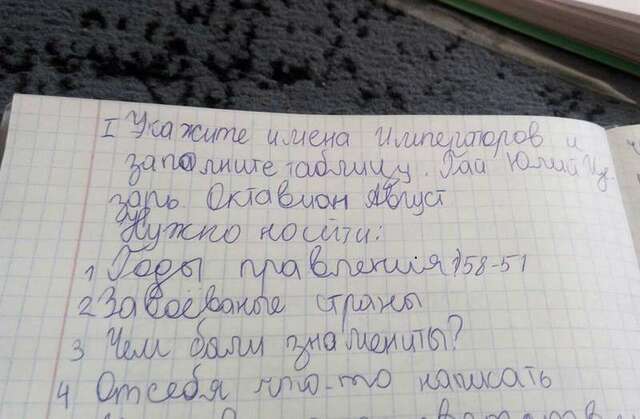 I Укажите имена Императоров и
заполните таблицу. Гай Юлий Це
зарь. Октавиан Август
Нужно носйти:
1 Годы правления 158-51
2 Завоёваные страны
3 Чем были знамениты?
4 От себя что-то написать